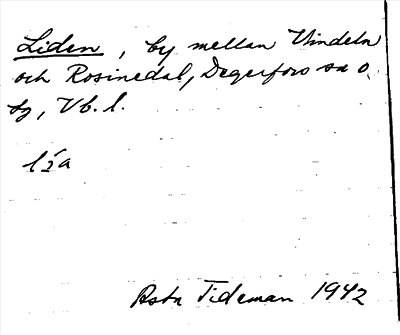 Liden, by mellan Vindeln
och Rosinedal, Degerfors sn o.
tg, Vb. l.
Asta Tideman 1942